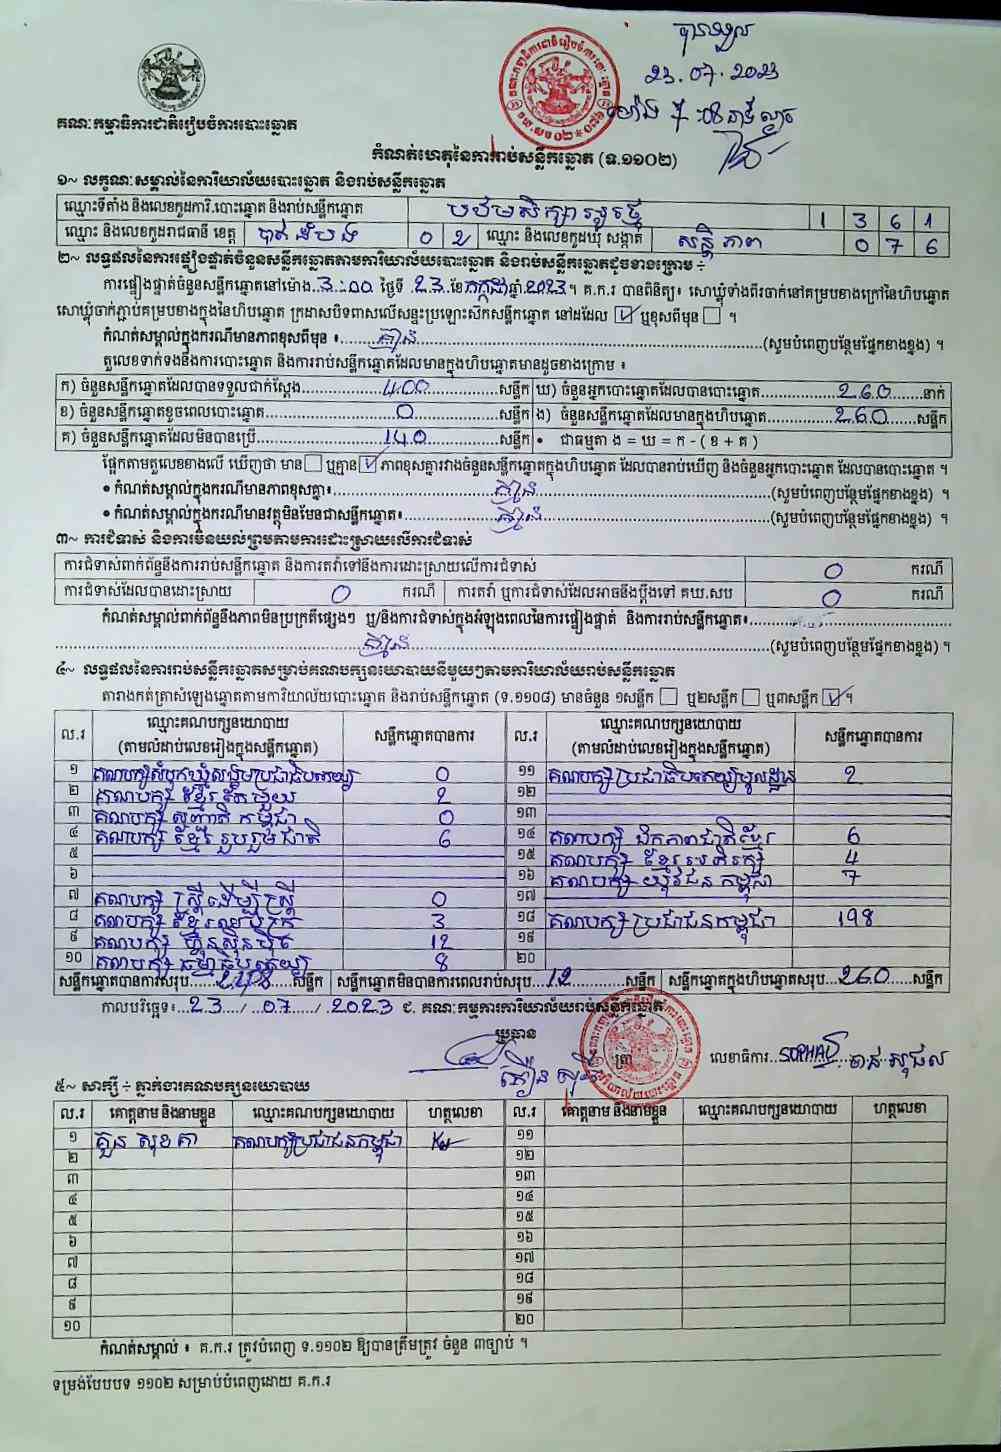 បានទទួល
23.07.2023
ម៉ោង 7:08 នាទី ល្ងាច
គណៈកម្មាធិការជាតិរៀបចំការបោះឆ្នោត
កំណត់ហេតុនៃការរាប់សន្លឹកឆ្នោត (ទ.១១០២)
១~ លក្ខណៈសម្គាល់នៃការិយាល័យបោះឆ្នោត និងរាប់សន្លឹកឆ្នោត
ឈ្មោះទីតាំង និងលេខកូដការិ.បោះឆ្នោត និងរាប់សន្លឹកឆ្នោត បឋមសិក្សា 1 3 6 1
ឈ្មោះ និងលេខកូដរាជធានី ខេត្ត បាត់ដំបង 0 2 ឈ្មោះ និងលេខកូដឃុំ សង្កាត់ សន្តិភាព 0 7 6
២~ លទ្ធផលនៃការផ្ទៀងផ្ទាត់ចំនួនសន្លឹកឆ្នោតតាមការិយាល័យបោះឆ្នោត និងរាប់សន្លឹកឆ្នោតដូចខាងក្រោម ÷
ការផ្ទៀងផ្ទាត់ចំនួនសន្លឹកឆ្នោតនៅម៉ោង 3:00 ថ្ងៃទី 23 ខែ កក្កដា ឆ្នាំ 2023។ គ.ក.រ បានពិនិត្យ៖ សោឃ្លុំទាំងពីរចាក់នៅគម្របខាងក្រៅនៃហិបឆ្នោត
សោឃ្លុំចាក់ភ្ជាប់គម្របខាងក្នុងនៃហិបឆ្នោត ក្រដាសបិទពាសលើសន្ទះប្រឡោះស៊កសន្លឹកឆ្នោត នៅដដែល ☑ ឬខុសពីមុន ☐ ។
កំណត់សម្គាល់ក្នុងករណីមានភាពខុសពីមុន ៖ គ្មាន (សូមបំពេញបន្ថែមផ្នែកខាងខ្នង) ។
តួលេខទាក់ទងនឹងការបោះឆ្នោត និងការរាប់សន្លឹកឆ្នោតដែលមានក្នុងហិបឆ្នោតមានដូចខាងក្រោម ៖
ក) ចំនួនសន្លឹកឆ្នោតដែលបានទទួលជាក់ស្តែង 400 សន្លឹក ឃ) ចំនួនអ្នកបោះឆ្នោតដែលបានបោះឆ្នោត 260 នាក់
ខ) ចំនួនសន្លឹកឆ្នោតខូចពេលបោះឆ្នោត 0 សន្លឹក ង) ចំនួនសន្លឹកឆ្នោតដែលមានក្នុងហិបឆ្នោត 260 សន្លឹក
គ) ចំនួនសន្លឹកឆ្នោតដែលមិនបានប្រើ 140 សន្លឹក • ជាធម្មតា ង = ឃ = ក - ( ខ + គ )
ផ្អែកតាមតួលេខខាងលើ ឃើញថា មាន ☐ ឬគ្មាន ☑ ភាពខុសគ្នារវាងចំនួនសន្លឹកឆ្នោតក្នុងហិបឆ្នោត ដែលបានរាប់ឃើញ និងចំនួនអ្នកបោះឆ្នោត ដែលបានបោះឆ្នោត ។
• កំណត់សម្គាល់ក្នុងករណីមានភាពខុសគ្នា៖ គ្មាន (សូមបំពេញបន្ថែមផ្នែកខាងខ្នង) ។
• កំណត់សម្គាល់ក្នុងករណីមានវត្ថុមិនមែនជាសន្លឹកឆ្នោត៖ គ្មាន (សូមបំពេញបន្ថែមផ្នែកខាងខ្នង) ។
៣~ ការជំទាស់ និងការមិនយល់ព្រមតាមការដោះស្រាយលើការជំទាស់
ការជំទាស់ពាក់ព័ន្ធនឹងការរាប់សន្លឹកឆ្នោត និងការតវ៉ាទៅនឹងការដោះស្រាយលើការជំទាស់ 0 ករណី
ការជំទាស់ដែលបានដោះស្រាយ 0 ករណី ការតវ៉ា ឬការជំទាស់ដែលអាចនឹងប្តឹងទៅ គឃ.សប 0 ករណី
កំណត់សម្គាល់ពាក់ព័ន្ធនឹងភាពមិនប្រក្រតីផ្សេងៗ ឬ/និងការជំទាស់ក្នុងអំឡុងពេលនៃការផ្ទៀងផ្ទាត់ និងការរាប់សន្លឹកឆ្នោត៖
គ្មាន (សូមបំពេញបន្ថែមផ្នែកខាងខ្នង) ។
៤~ លទ្ធផលនៃការរាប់សន្លឹកឆ្នោតសម្រាប់គណបក្សនយោបាយនីមួយៗតាមការិយាល័យរាប់សន្លឹកឆ្នោត
តារាងកត់ត្រាសំឡេងឆ្នោតតាមការិយាល័យបោះឆ្នោត និងរាប់សន្លឹកឆ្នោត (ទ.១១០៨) មានចំនួន ១សន្លឹក ☐ ឬ២សន្លឹក ☐ ឬ៣សន្លឹក ☑ ។
ល.រ ឈ្មោះគណបក្សនយោបាយ (តាមលំដាប់លេខរៀងក្នុងសន្លឹកឆ្នោត) សន្លឹកឆ្នោតបានការ ល.រ ឈ្មោះគណបក្សនយោបាយ (តាមលំដាប់លេខរៀងក្នុងសន្លឹកឆ្នោត) សន្លឹកឆ្នោតបានការ
១ គណបក្សសំបុកឃ្មុំសង្គមប្រជាធិបតេយ្យ 0 ១១ គណបក្សប្រជាធិបតេយ្យមូលដ្ឋាន 2
២ គណបក្ស ខ្មែរតែមួយ 2 ១២
៣ គណបក្ស សញ្ជាតិកម្ពុជា 0 ១៣
៤ គណបក្ស ខ្មែររួបរួមជាតិ 6 ១៤ គណបក្ស ឯកភាពជាតិខ្មែរ 6
៥ ១៥ គណបក្ស ខ្មែរអភិរក្ស 4
៦ ១៦ គណបក្ស យុវជនកម្ពុជា 7
៧ គណបក្ស ស្ត្រីដើម្បីស្ត្រី 0 ១៧
៨ គណបក្ស ខ្មែរឈប់ក្រ 3 ១៨ គណបក្សប្រជាជនកម្ពុជា 198
៩ គណបក្ស ហ្វ៊ុនស៊ិនប៉ិច 12 ១៩
១០ គណបក្ស ធម្មាធិបតេយ្យ 8 ២០
សន្លឹកឆ្នោតបានការសរុប 248 សន្លឹក សន្លឹកឆ្នោតមិនបានការពេលរាប់សរុប 12 សន្លឹក សន្លឹកឆ្នោតក្នុងហិបឆ្នោតសរុប 260 សន្លឹក
កាលបរិច្ឆេទ៖ 23 / 07 / 2023 ជ. គណៈកម្មការការិយាល័យរាប់សន្លឹកឆ្នោត
ប្រធាន
ត្រា លេខាធិការ SOPHAL ចាន់ សុផល
៥~ សាក្សី ÷ ភ្នាក់ងារគណបក្សនយោបាយ
ល.រ គោត្តនាម និងនាមខ្លួន ឈ្មោះគណបក្សនយោបាយ ហត្ថលេខា ល.រ គោត្តនាម និងនាមខ្លួន ឈ្មោះគណបក្សនយោបាយ ហត្ថលេខា
១ គួន សុខគា គណបក្សប្រជាជនកម្ពុជា ១១
២ ១២
៣ ១៣
៤ ១៤
៥ ១៥
៦ ១៦
៧ ១៧
៨ ១៨
៩ ១៩
១០ ២០
កំណត់សម្គាល់ ៖ គ.ក.រ ត្រូវបំពេញ ទ.១១០២ ឱ្យបានត្រឹមត្រូវ ចំនួន ៣ច្បាប់ ។
ទម្រង់បែបបទ ១១០២ សម្រាប់បំពេញដោយ គ.ក.រ